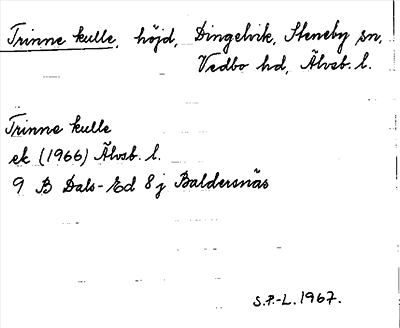 Trinne kulle, höjd, Dingelvik, Steneby sn,
Vedbo hd, Älvsb. l.
Trinne kulle
ek (1966) Älvsb. l.
9 B Dals-Ed 8 j Baldersnäs
S.P.-L. 1967.